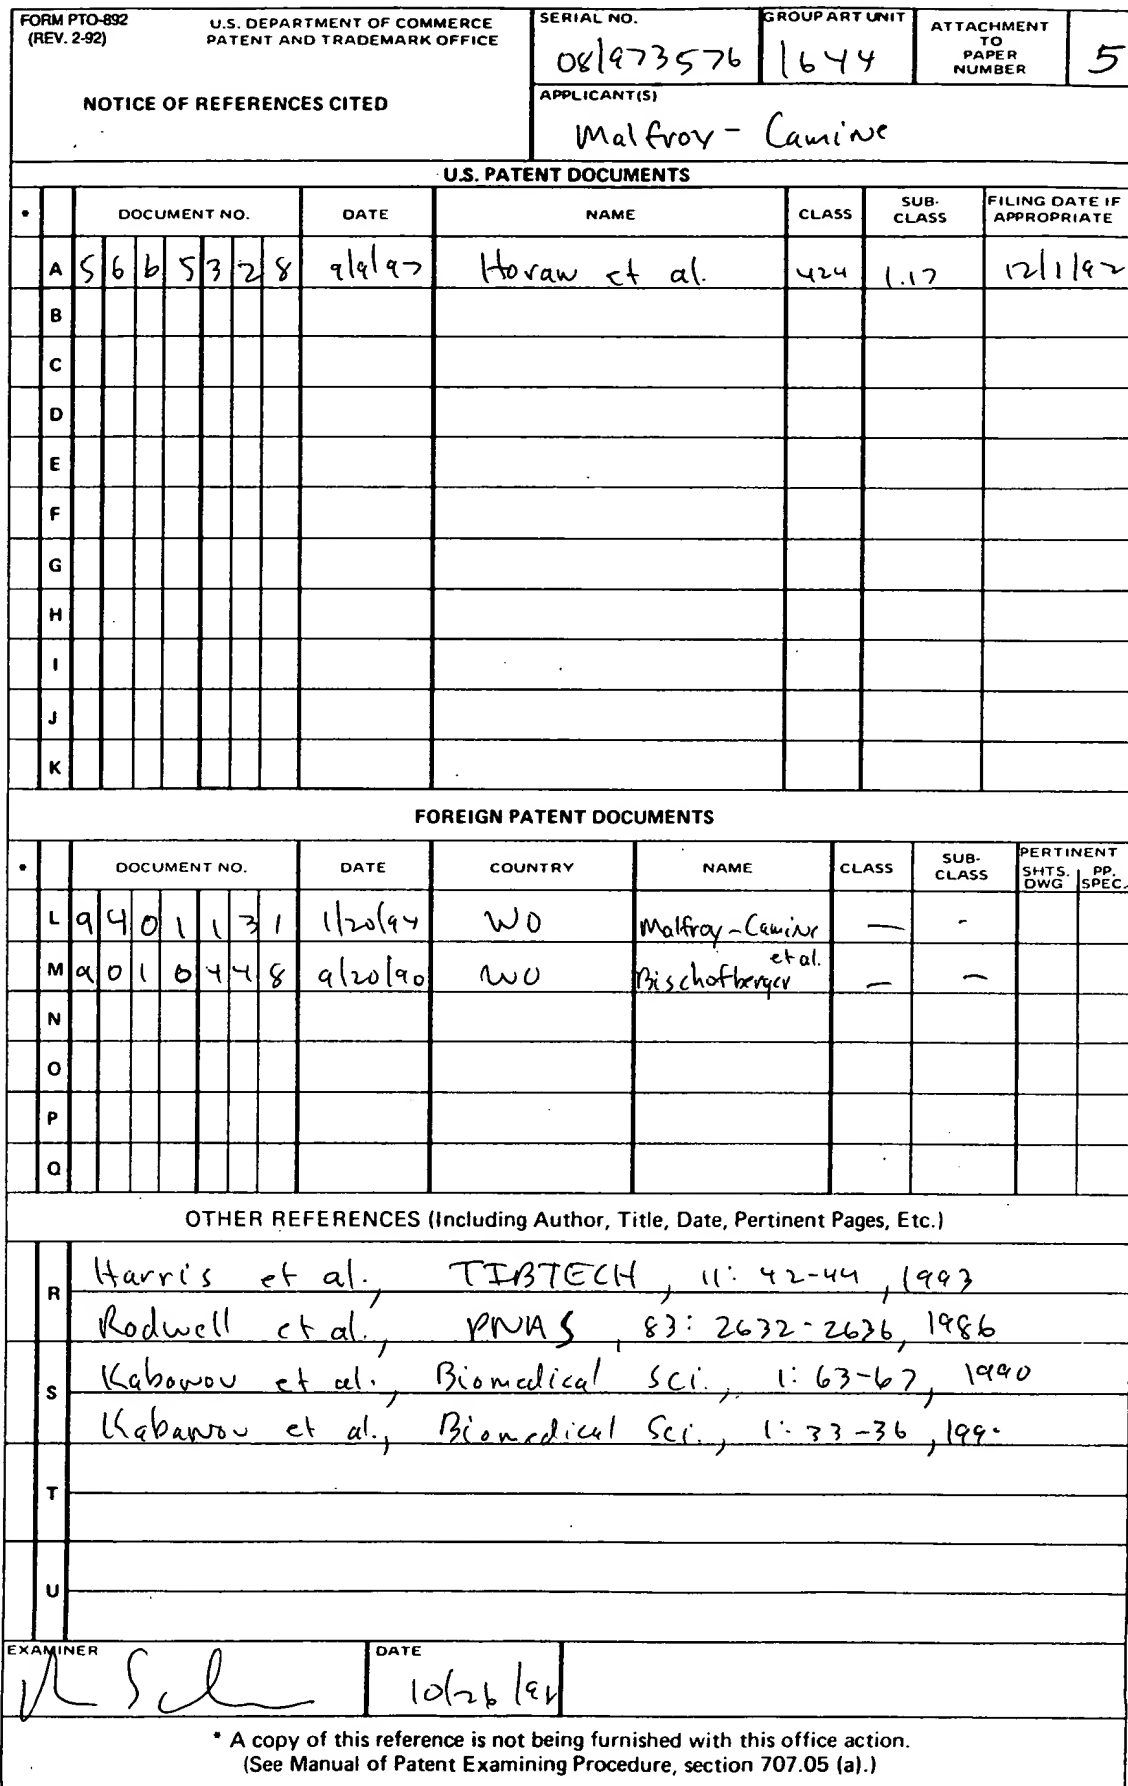 FORM PTO-892
(REV. 2-92)
U.S. DEPARTMENT OF COMMERCE
PATENT AND TRADEMARK OFFICE
NOTICE OF REFERENCES CITED
SERIAL NO.
08/973576
GROUP ART UNIT
1644
ATTACHMENT
TO
PAPER
NUMBER
5
APPLICANT(S)
Malfroy - Camine
U.S. PATENT DOCUMENTS
* DOCUMENT NO. DATE NAME CLASS SUB-CLASS FILING DATE IF APPROPRIATE
A 5665328 9/9/97 Horan et al. 424 1.17 12/1/92
B
C
D
E
F
G
H
I
J
K
FOREIGN PATENT DOCUMENTS
* DOCUMENT NO. DATE COUNTRY NAME CLASS SUB-CLASS PERTINENT SHTS. DWG PP. SPEC.
L 9401131 1/20/94 WO Malfroy-Camine et al. — -
M 9010448 9/20/90 WO Bischofberger — —
N
O
P
Q
OTHER REFERENCES (Including Author, Title, Date, Pertinent Pages, Etc.)
R Harris et al., TIBTECH, 11: 42-44, 1993
Rodwell et al., PNAS, 83: 2632-2636, 1986
S Kabanov et al., Biomedical Sci., 1: 63-67, 1990
Kabanov et al., Biomedical Sci., 1: 33-36,
T
U
EXAMINER
DATE
10/26/
* A copy of this reference is not being furnished with this office action.
(See Manual of Patent Examining Procedure, section 707.05 (a).)